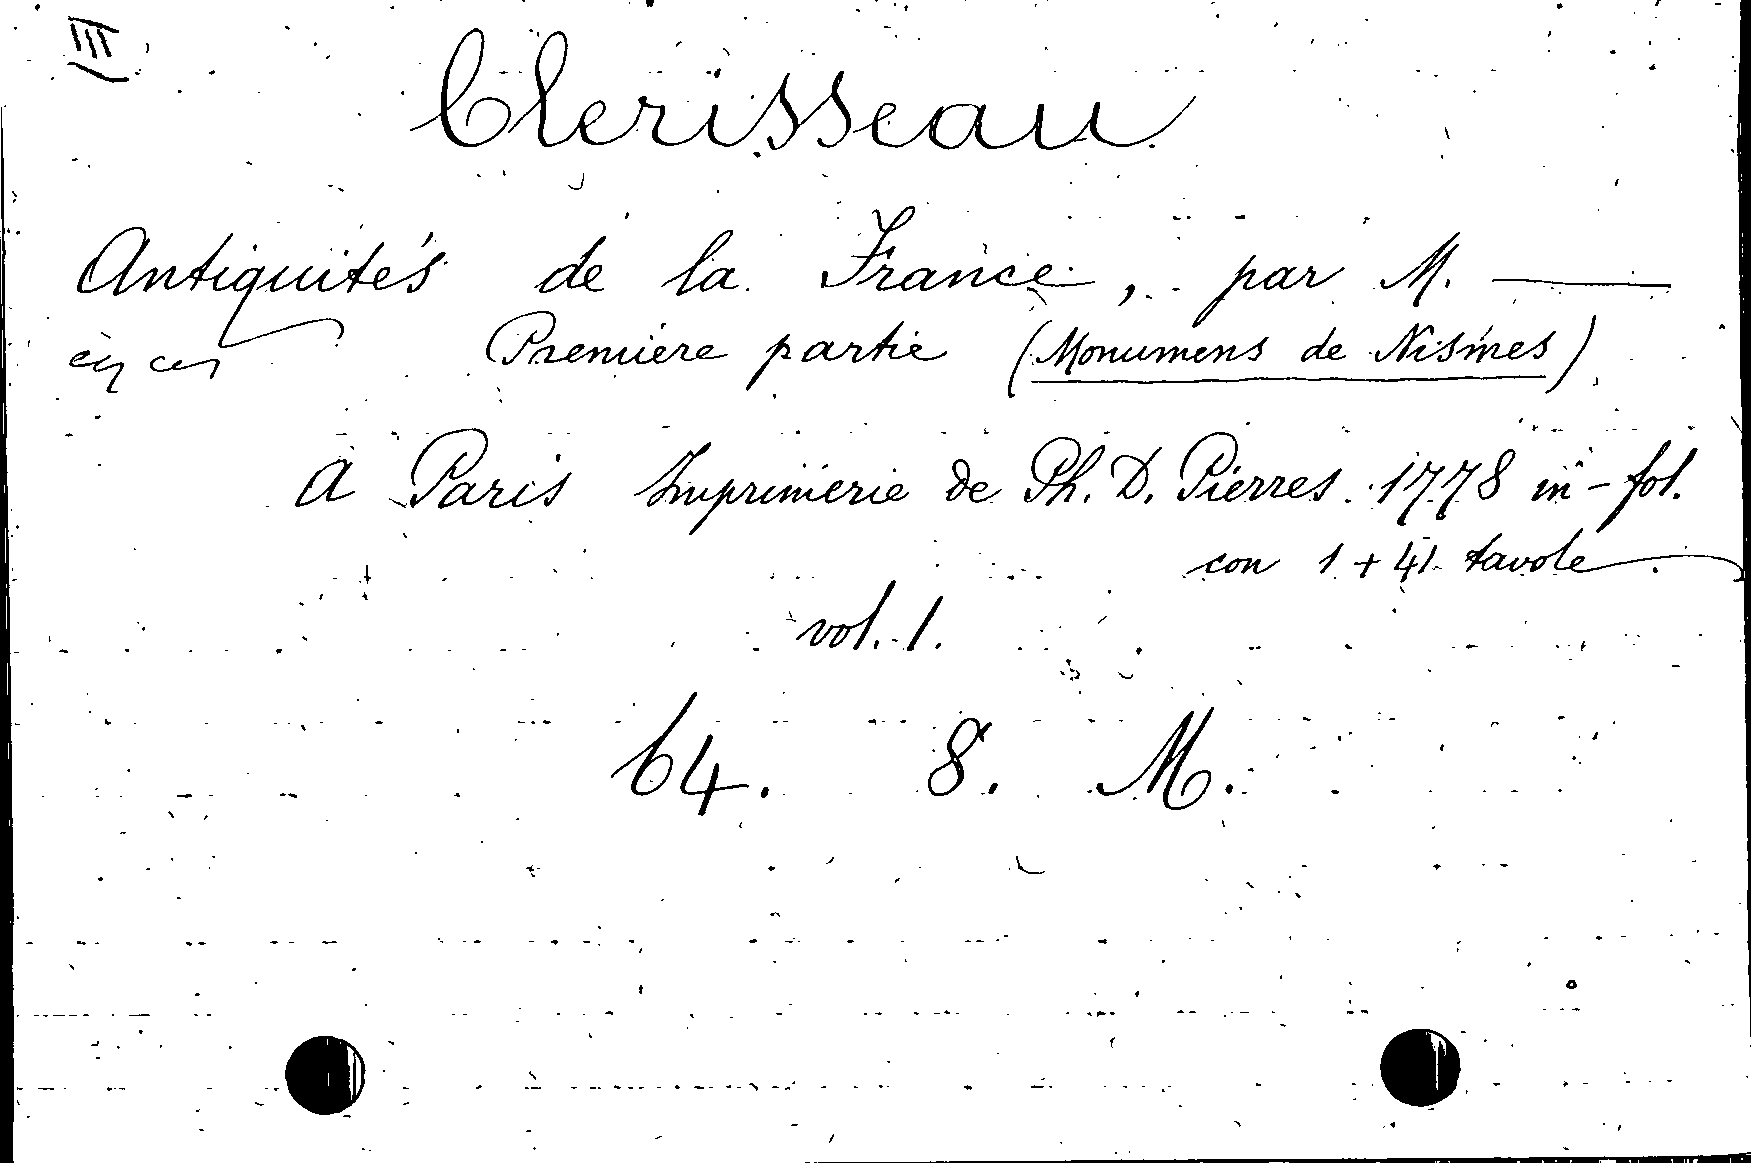 III
Clerisseau
Antiquités de la France, par M. ——
Premiere partie (Monumens de Nismes)
A Paris Imprimerie de Ph. D. Pierres. 1778 in-fol.
con 1 + 41 tavole
vol. 1.
64. 8. M.